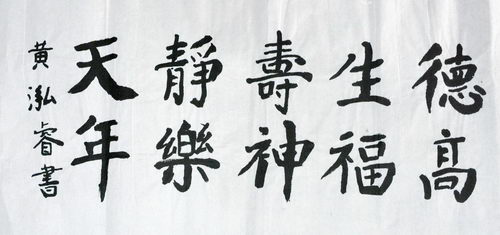 德高
生福
壽神
靜樂
天年
黃泓睿書